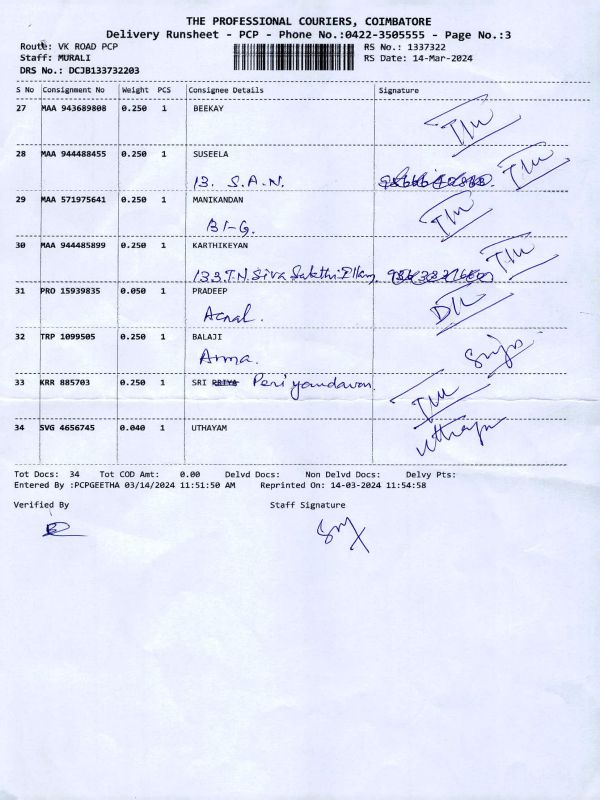 THE PROFESSIONAL COURIERS, COIMBATORE
Delivery Runsheet - PCP - Phone No.:0422-3505555 - Page No.:3
Route: VK ROAD PCP
RS No.: 1337322
Staff: MURALI
RS Date: 14-Mar-2024
DRS No.: DCJB133732203
S No Consignment No Weight PCS Consignee Details Signature
27 MAA 943689808 0.250 1 BEEKAY
28 MAA 944488455 0.250 1 SUSEELA
13. S.A.N.
29 MAA 571975641 0.250 1 MANIKANDAN
B1-G.
30 MAA 944485899 0.250 1 KARTHIKEYAN
133.T.N. Siva Sakthi
31 PRO 15939835 0.050 1 PRADEEP
32 TRP 1099505 0.250 1 BALAJI
Amma.
33 KRR 885703 0.250 1 SRI
34 SVG 4656745 0.040 1 UTHAYAM
Tot Docs: 34 Tot COD Amt: 0.00 Delvd Docs: Non Delvd Docs: Delvy Pts:
Entered By :PCPGEETHA 03/14/2024 11:51:50 AM Reprinted On: 14-03-2024 11:54:58
Verified By Staff Signature